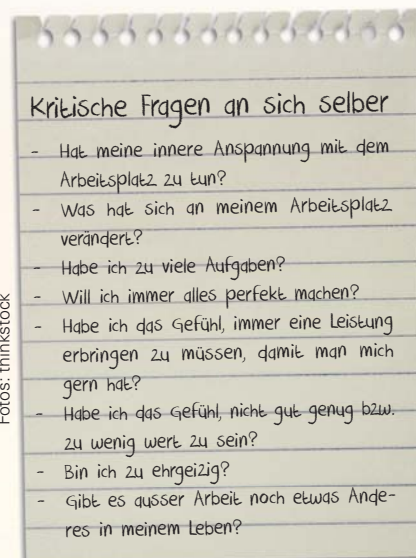 Kritische Fragen an sich selber
- Hat meine innere Anspannung mit dem
Arbeitsplatz zu tun?
- Was hat sich an meinem Arbeitsplatz
verändert?
- Habe ich zu viele Aufgaben?
- Will ich immer alles perfekt machen?
- Habe ich das Gefühl, immer eine Leistung
erbringen zu müssen, damit man mich
gern hat?
- Habe ich das Gefühl, nicht gut genug bzw.
zu wenig wert zu sein?
- Bin ich zu ehrgeizig?
- Gibt es ausser Arbeit noch etwas Ande-
res in meinem Leben?
Fotos: thinkstock